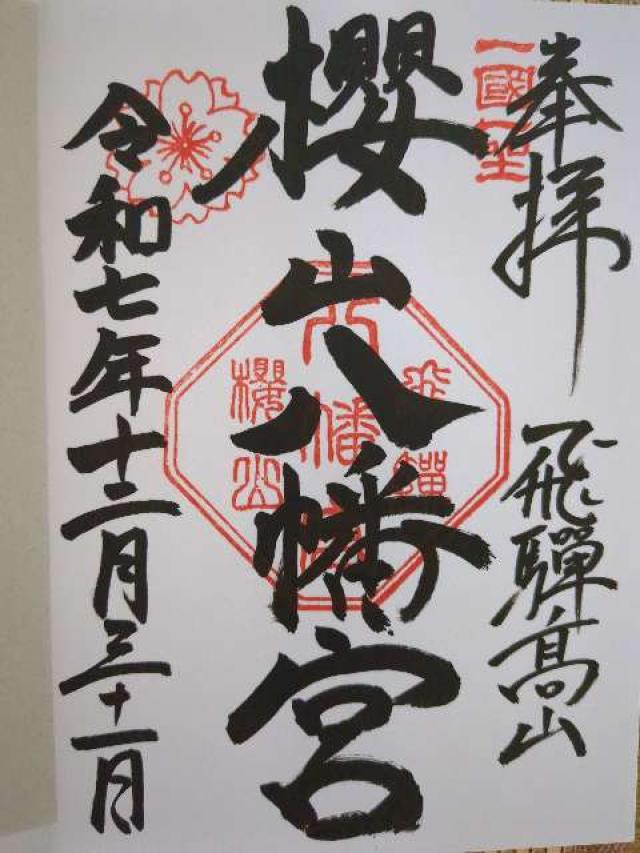 奉拝
飛驒髙山
櫻山八幡宮
令和七年十二月三十一日
飛驒
八幡宮
櫻山